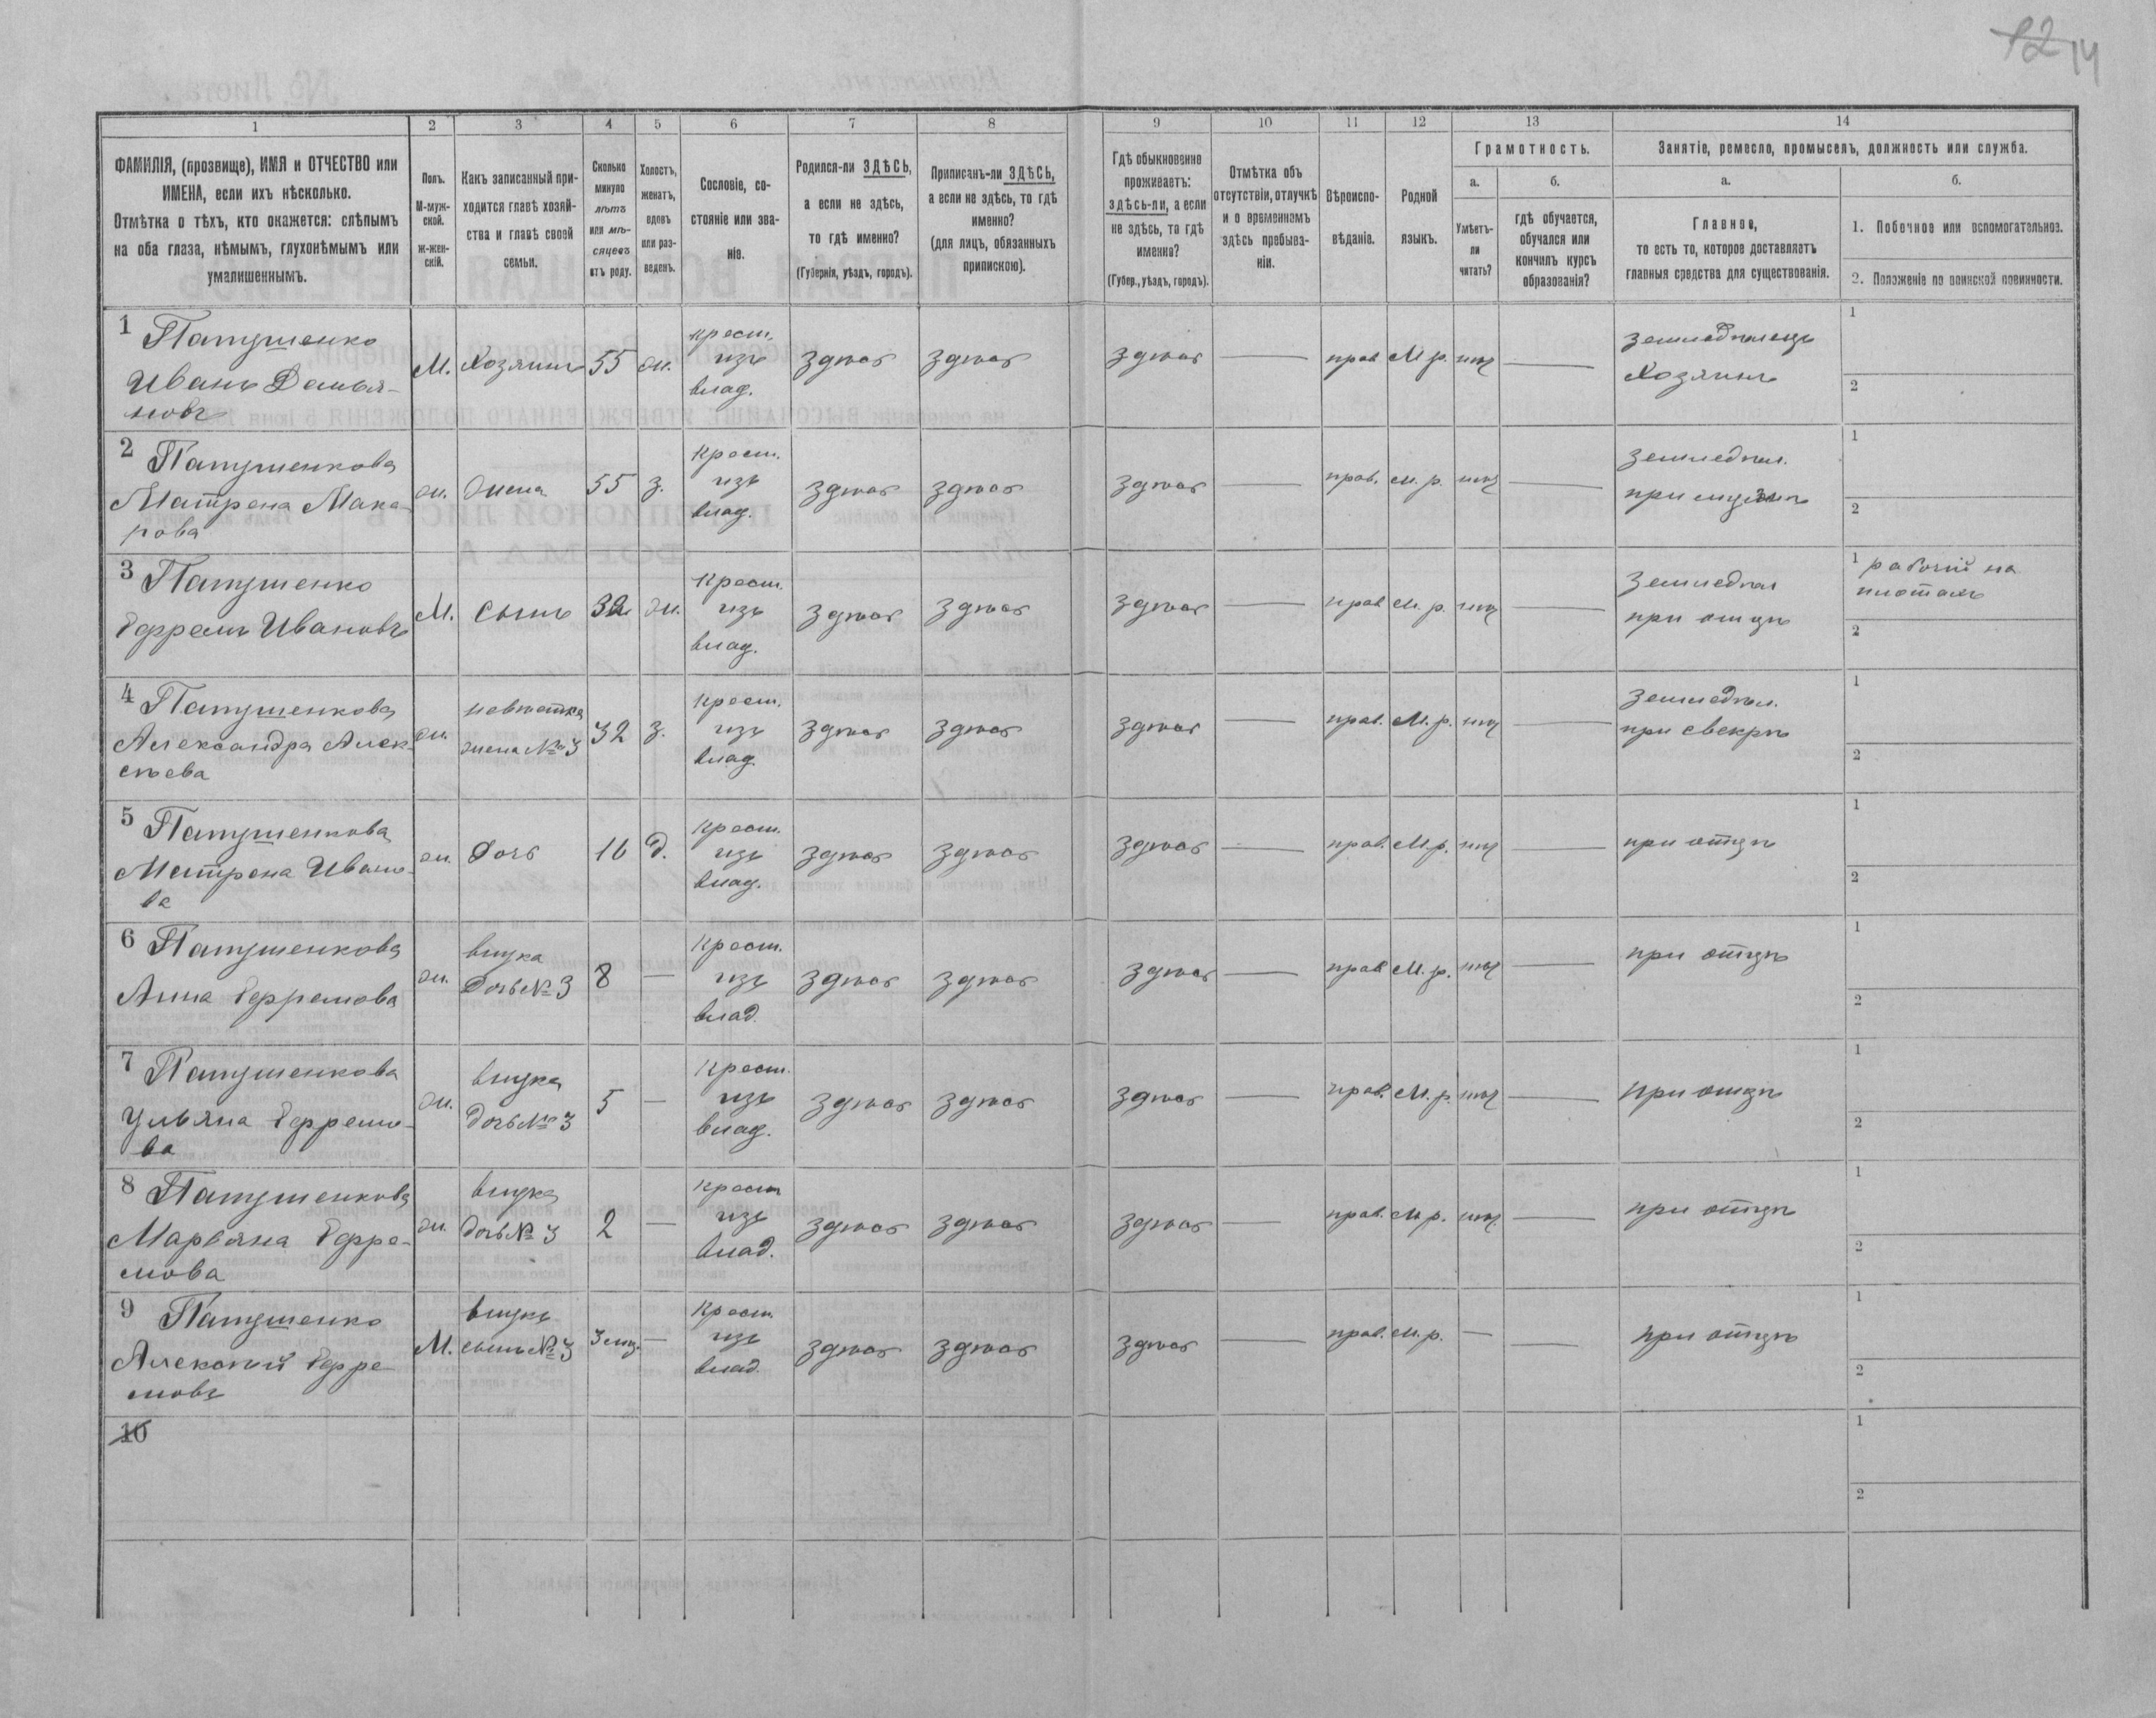 12 14
1 2 3 4 5 6 7 8 9 10 11 12 13 14
ФАМИЛІЯ, (прозвище), ИМЯ и ОТЧЕСТВО или
ИМЕНА, если ихъ нѣсколько.
Отмѣтка о тѣхъ, кто окажется: слѣпымъ
на оба глаза, нѣмымъ, глухонѣмымъ или
умалишеннымъ.
Полъ.
М-муж-
ской.
ж-жен-
скій.
Какъ записанный при-
ходится главѣ хозяй-
ства и главѣ своей
семьи.
Сколько
минуло
лѣтъ
или мѣ-
сяцевъ
отъ роду.
Холостъ,
женатъ,
вдовъ
или раз-
веденъ.
Сословіе, со-
стояніе или зва-
ніе.
Родился-ли ЗДѢСЬ,
а если не здѣсь,
то гдѣ именно?
(Губернія, уѣздъ, городъ).
Приписанъ-ли ЗДѢСЬ,
а если не здѣсь, то гдѣ
именно?
(для лицъ, обязанныхъ
припискою).
Гдѣ обыкновенно
проживаетъ:
здѣсь-ли, а если
не здѣсь, то гдѣ
именно?
(Губер., уѣздъ, городъ).
Отмѣтка объ
отсутствіи, отлучкѣ
и о временномъ
здѣсь пребыва-
ніи.
Вѣроиспо-
вѣданіе.
Родной
языкъ.
Грамотность.
а.
Умѣетъ-
ли
читать?
б.
гдѣ обучается,
обучался или
кончилъ курсъ
образованія?
Занятіе, ремесло, промыселъ, должность или служба.
а.
Главное,
то есть то, которое доставляетъ
главныя средства для существованія.
б.
1. Побочное или вспомогательное.
2. Положеніе по воинской повинности.
1 Папушенко
Иванъ Демья-
новъ
М. Хозяинъ 55 ж.
крест.
изъ
влад.
здѣсь здѣсь здѣсь — прав М.р. нѣт —
земледѣлецъ
Хозяинъ
1
2
2 Папушенкова
Матрена Мака-
рова
ж. жена 55 з.
крест.
изъ
влад.
здѣсь здѣсь здѣсь — прав. М.р. нѣт —
земледѣл.
при мужѣ
1
2
3 Папушенко
Ефремъ Ивановъ
М. сынъ 32 ж.
крест.
изъ
влад.
здѣсь здѣсь здѣсь — прав М.р. нѣт —
земледѣл
при отцѣ
1 рабочій на
плотахъ
2
4 Папушенкова
Александра Алек-
сѣева
ж.
невѣстка
жена № 3
32 з.
крест.
изъ
влад.
здѣсь здѣсь здѣсь — прав. М.р. нѣт —
земледѣл.
при свекрѣ
1
2
5 Папушенкова
Матрена Ивано-
ва
ж. дочь 16 д.
крест.
изъ
влад.
здѣсь здѣсь здѣсь — прав. М.р. нѣт —
при отцѣ
1
2
6 Папушенкова
Анна Ефремова
ж.
внука
дочь № 3
8 —
крест.
изъ
влад.
здѣсь здѣсь здѣсь — прав М.р. нѣт —
при отцѣ
1
2
7 Папушенкова
Ульяна Ефремо-
ва
ж.
внука
дочь № 3
5 —
крест.
изъ
влад.
здѣсь здѣсь здѣсь — прав. М.р. нѣт —
при отцѣ
1
2
8 Папушенкова
Марьяна Ефре-
мова
ж.
внука
дочь № 3
2 —
крест
изъ
влад.
здѣсь здѣсь здѣсь — прав. М.р. нѣт —
при отцѣ
1
2
9 Папушенко
Алексѣй Ефре
мовъ
М.
внукъ
сынъ № 3
3 мц. —
крест.
изъ
влад.
здѣсь здѣсь здѣсь — прав. М.р. — —
при отцѣ
1
2
10
1
2